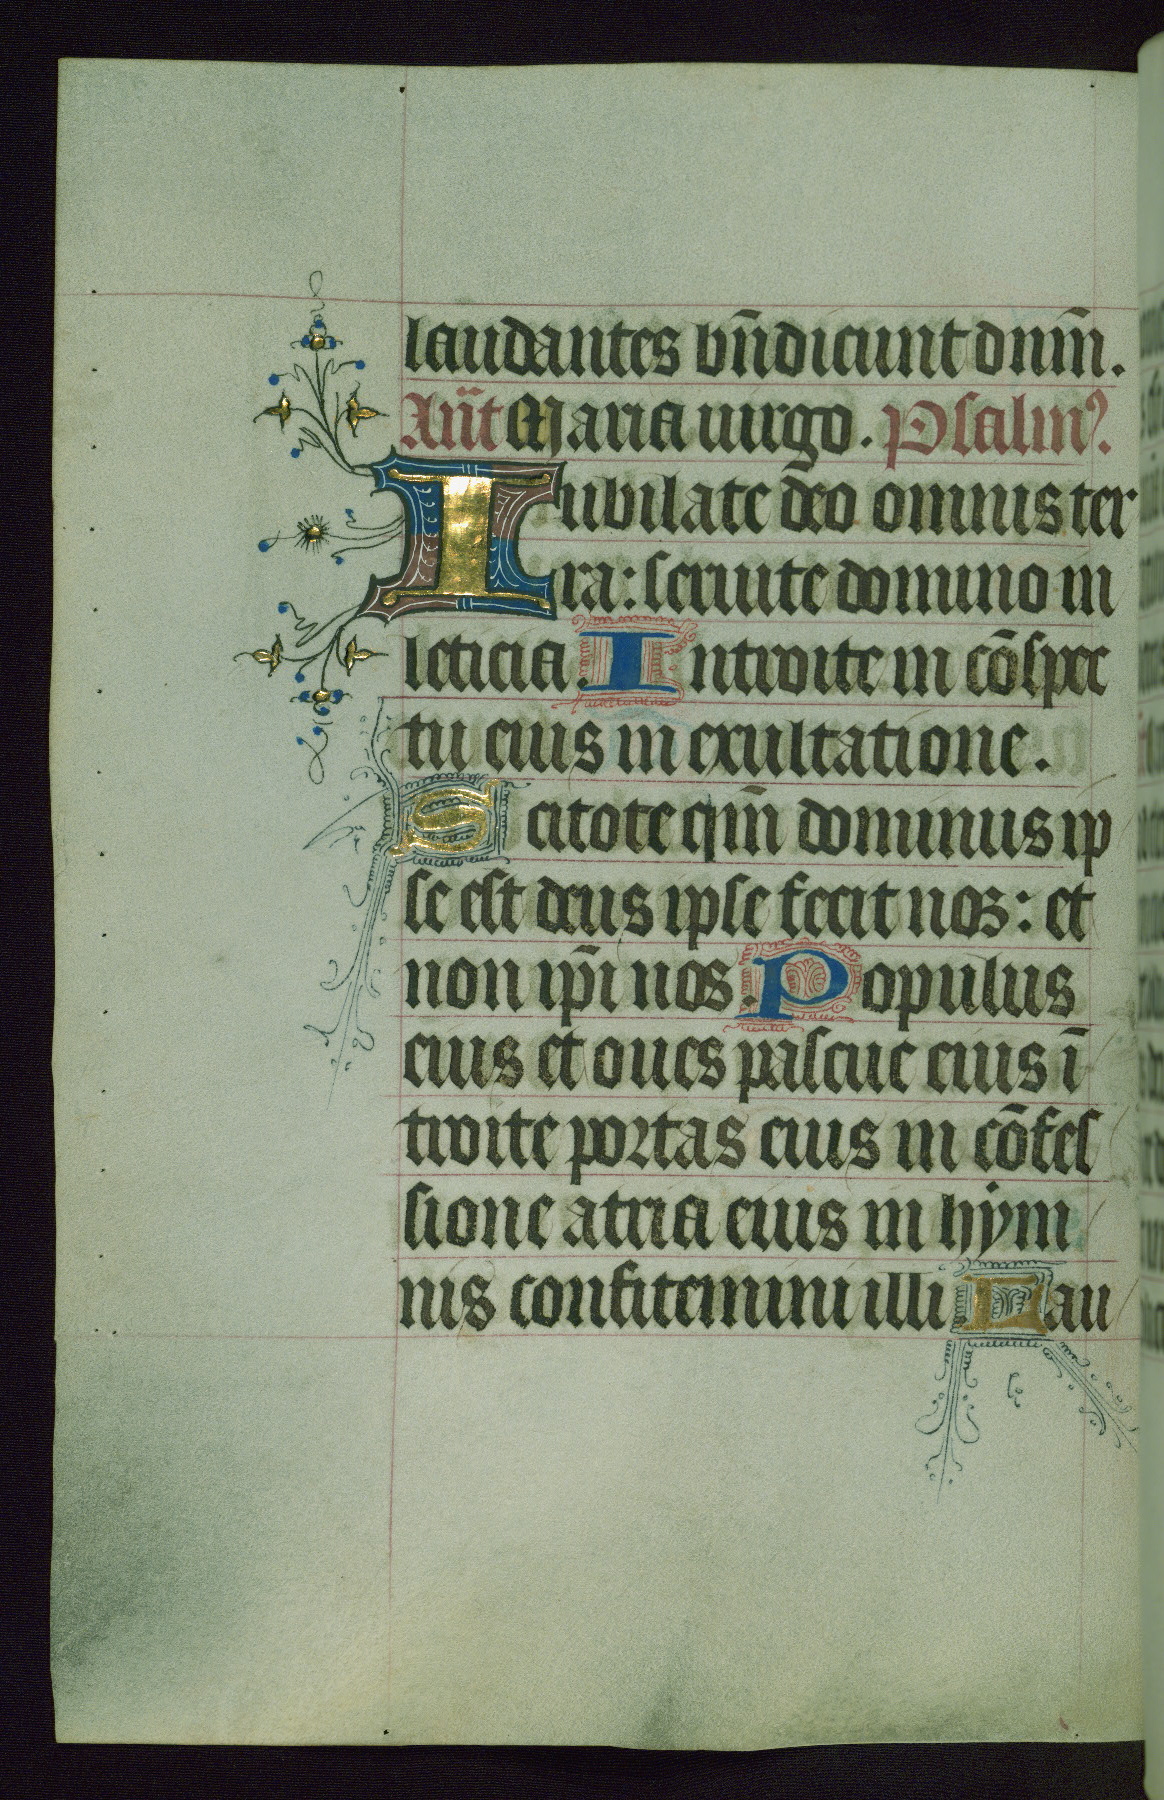 laudantes bn̄dicunt dnm̄.
Ant̄ Maria uirgo. Psalm⁹.
Iubilate deo omnis ter
ra: seruite domino in
leticia. Introite in cōspec
tu eius in exultatione.
Scitote qm̄ dominus ip
se est deus ipse fecit nos: et
non ip̄i nos. Populus
eius et oues pascue eius ī
troite portas eius in cōfes
sione atria eius in hẏm
nis confitemini illi Lau